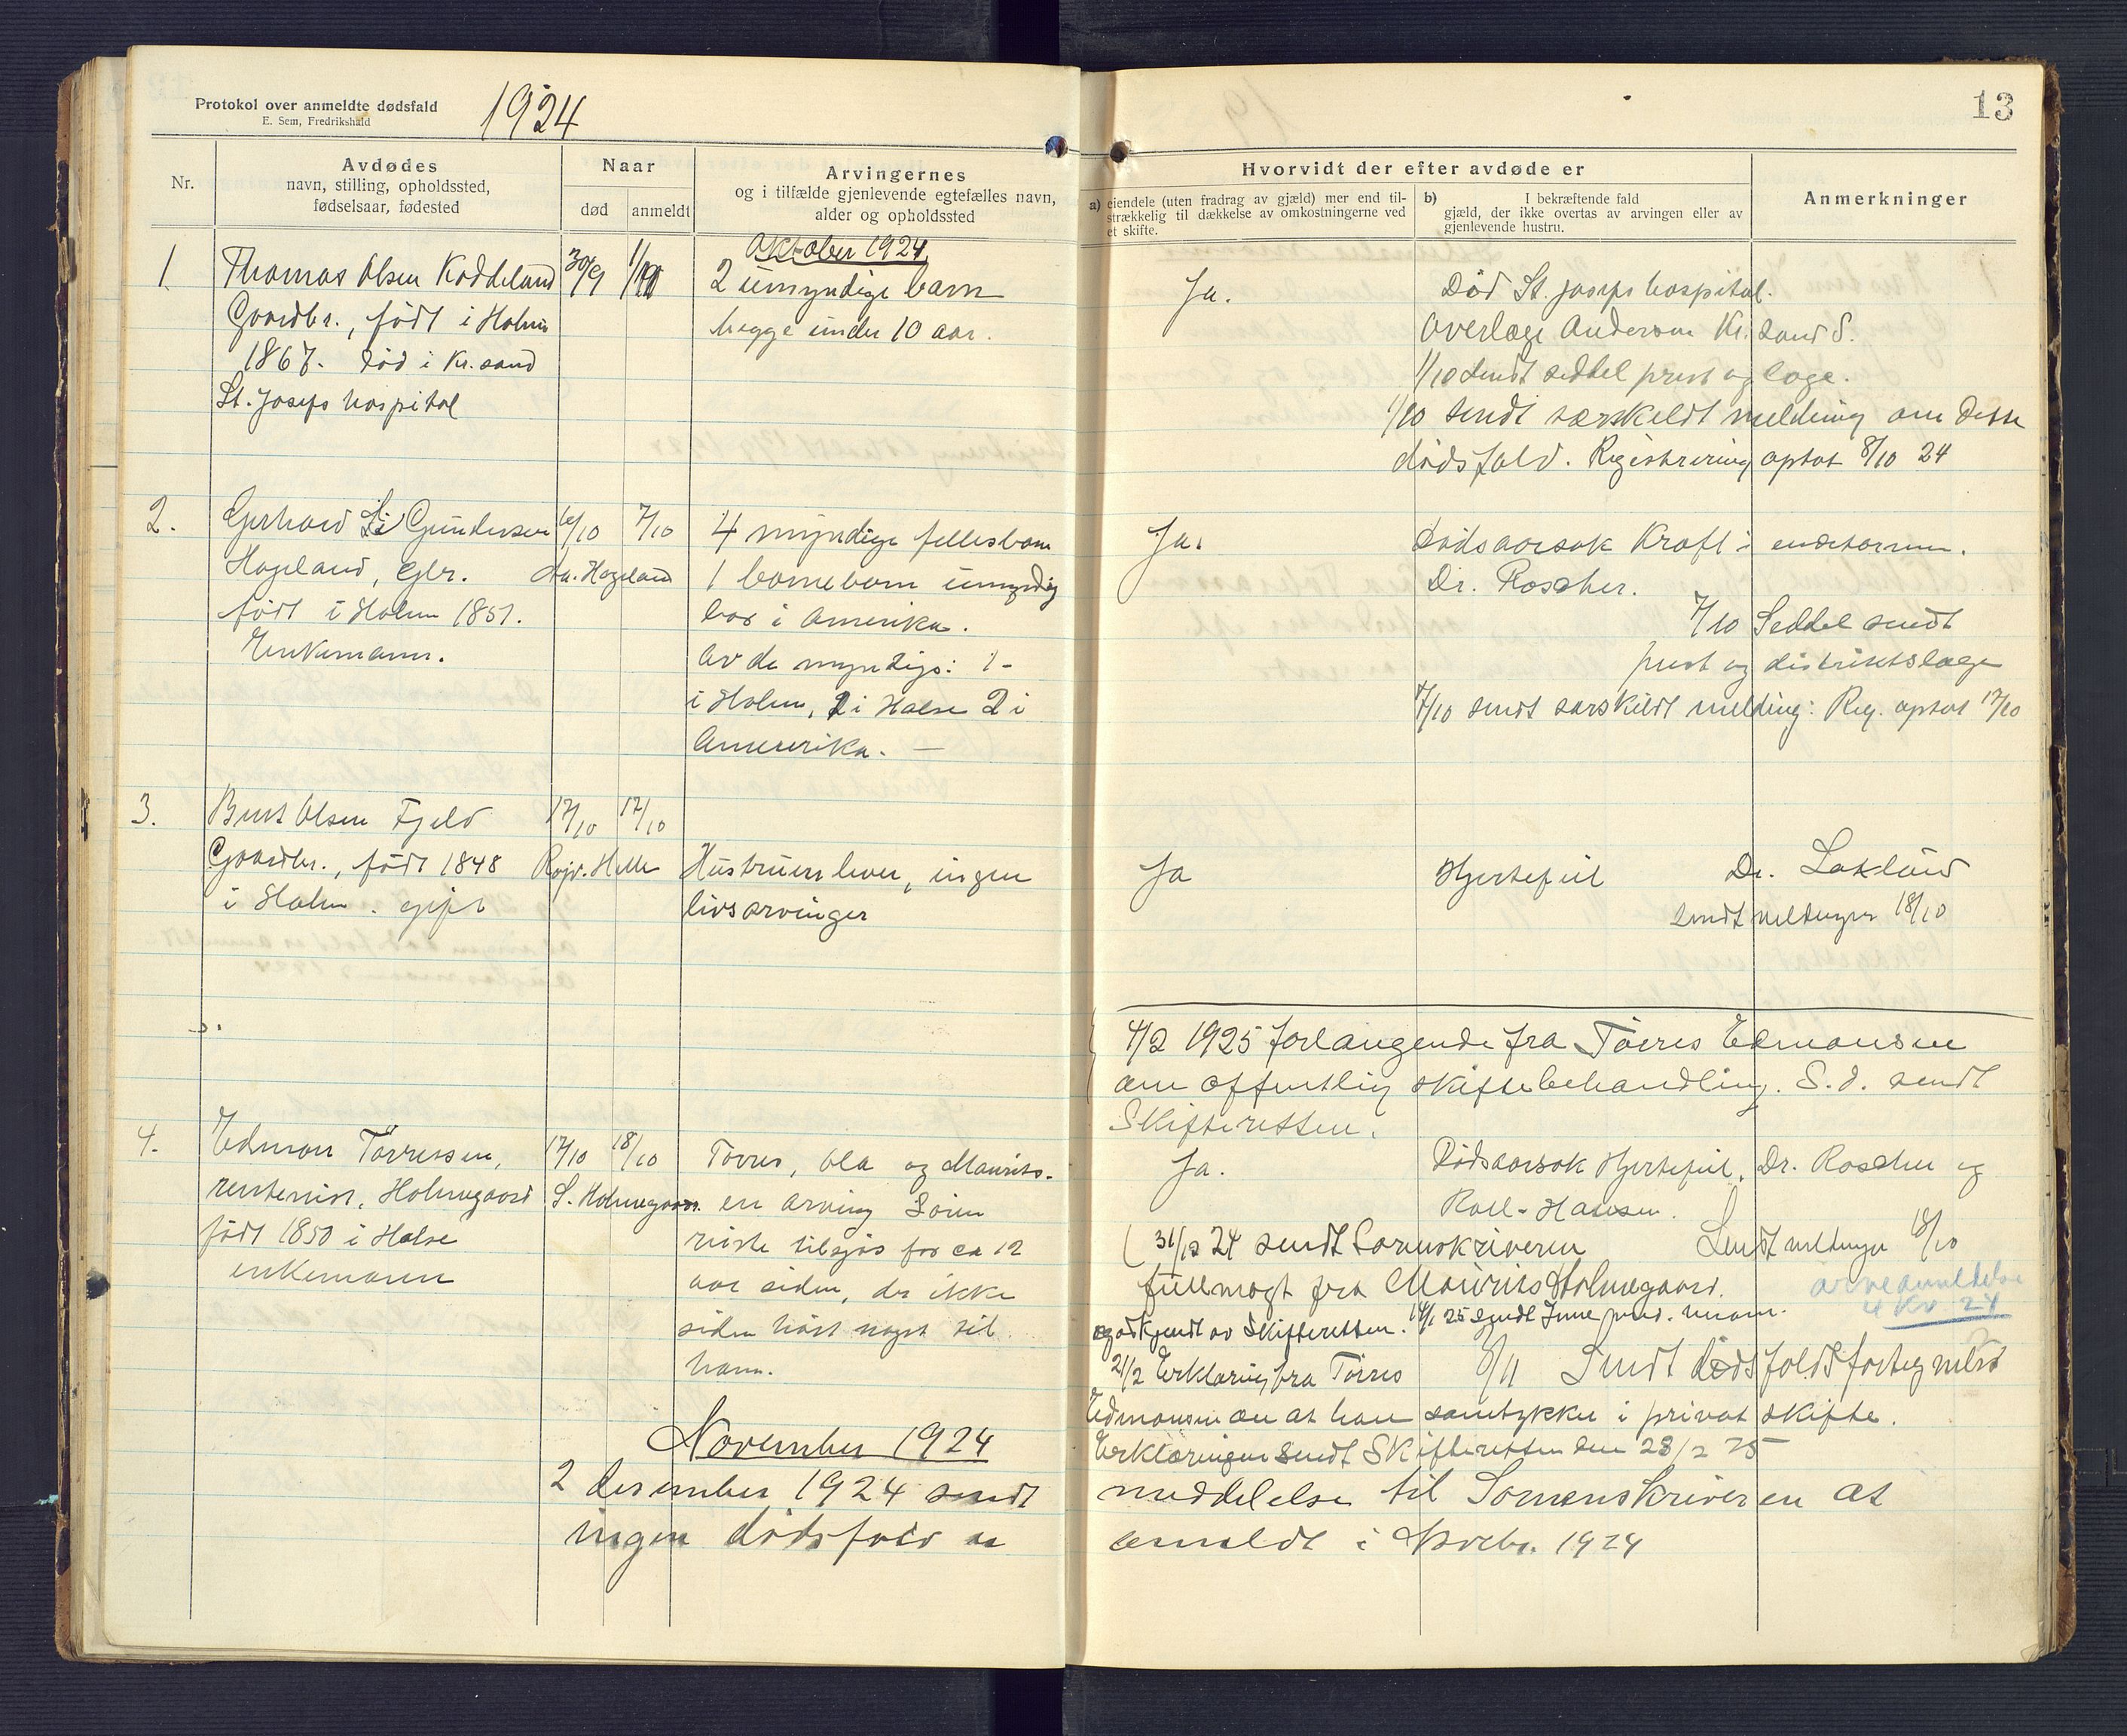 Protokol over anmeldte dødsfald
E. Sem, Fredrikshald
1924
13
Nr.
Avdødes
navn, stilling, opholdssted,
fødselsaar, fødested
Naar
død
anmeldt
Arvingernes
og i tilfælde gjenlevende egtefælles navn,
alder og opholdssted
Hvorvidt der efter avdøde er
a) eiendele (uten fradrag av gjæld) mer end til-
strækkelig til dækkelse av omkostningerne ved
et skifte.
b) I bekræftende fald
gjæld, der ikke overtas av arvingen eller av
gjenlevende hustru.
Anmerkninger
Oktober 1924
1 Thomas Olsen Koddeland 30/9 1/10 2 umyndige barn
Gaardbr., født i Holum begge under 10 aar.
1867. Død i Kr.sand
St. Josefs hospital
Ja. Død St. Josefs hospital.
Overlæge Anderson Kr.sand S.
1/10 sendt seddel prest og læge.
1/10 sendt særskeldt melding om dette
dødsfald. Registrering optat 8/10 24
2. Gerhard Gundersen 6/10 7/10 4 myndige fellesbarn
Hageland, Gbr. Aa. Hageland 1 barnebarn umyndig
født i Holum 1851. bor i Amerika.
Enkemann. Av de myndige: 1-
i Holum, 1 i Halse 2 i
Amererika. —
Ja. Dødsaarsak Kræft i endetarmen.
Dr. Roscher.
7/10 Seddel sendt
prest og distriktslæge
7/10 sendt særskildt melding: Reg. optat 17/10
3. Olsen Fjeld 17/10 17/10
Gaardbr., født 1848 Hustruen lever, ingen
i Holum. gift livsarvinger
Ja Hjertefeil Dr. Laxlund
sendt meldinger 18/10
4/2 1925 forlangende fra Tørres Edmonsen
om offentlig skiftebehandling. S.d. sendt
Skifteretten.
4. Edmon Tørresen, 17/10 18/10 Tørres, Ola og Maurits.
rentenist, Holmegaard S. Holmegaard. en arving Sören
født 1850 i Halse reiste tilsjøs for ca 12
enkemann aar siden, der ikke
siden hørt noget til
ham.
Ja. Dødsaarsak Hjertefeil. Dr. Roscher og
Roll-Hansen.
31/12 24 sendt Sorenskriveren Sendt meldinger 18/10
fullmagt fra Maurits Holmegaard. arveanmeldelse
4 Kv 24
godkjendt av Skifteretten. 14/1 25 sendt
21/2 Erklæring fra Tørres 8/11 Sendt dødsfaldsfortegnelse
Edmonsen om at han samtykker i privat skifte.
Erklæringen sendt Skifteretten den 23/2 25
November 1924
2 desember 1924 sendt meddelelse til Sorenskriveren at
ingen dødsfald er anmeldt i Novbr. 1924